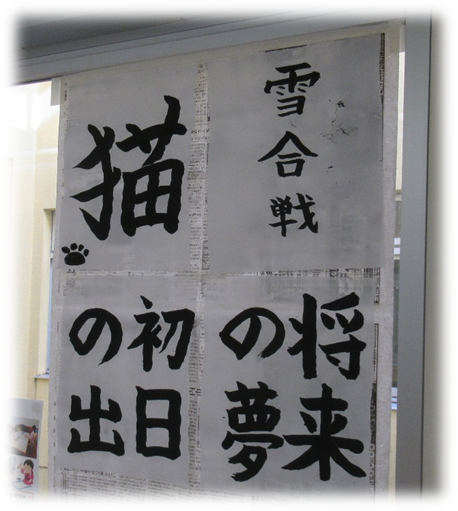 雪合戦
猫
将来
の夢
初日
の出